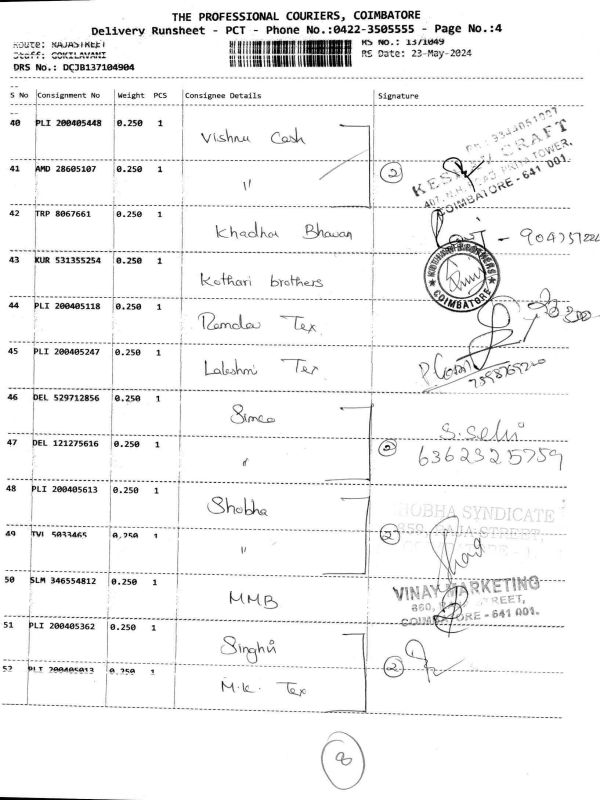 THE PROFESSIONAL COURIERS, COIMBATORE
Delivery Runsheet - PCT - Phone No.:0422-3505555 - Page No.:4
Route: RAJASTREET RS No.: 1371049
Staff: GOKILAVANI RS Date: 23-May-2024
DRS No.: DCJB137104904
S No Consignment No Weight PCS Consignee Details Signature
40 PLI 200405448 0.250 1 Vishnu Cash
KESHAV CRAFT
TOWER,
COIMBATORE - 641 001.
41 AMD 28605107 0.250 1 " 2
42 TRP 8067661 0.250 1 Khadhar Bhavan
43 KUR 531355254 0.250 1 Kothari brothers
KOTHARI BROTHERS
COIMBATORE
44 PLI 200405118 0.250 1 Ramdev Tex
45 PLI 200405247 0.250 1 Lakshmi Tex
46 DEL 529712856 0.250 1 Simco
S. Selvi
47 DEL 121275616 0.250 1 " 2
6362325759
48 PLI 200405613 0.250 1 Shobha
SHOBHA SYNDICATE
RAJA STREET,
49 TVL 5033465 0.250 1 " 2
50 SLM 346554812 0.250 1 MMB
VINAY MARKETING
STREET,
COIMBATORE - 641 001.
51 PLI 200405362 0.250 1 Singhvi
52 PLI 200405013 0.250 1 M.K. Tex 2
8